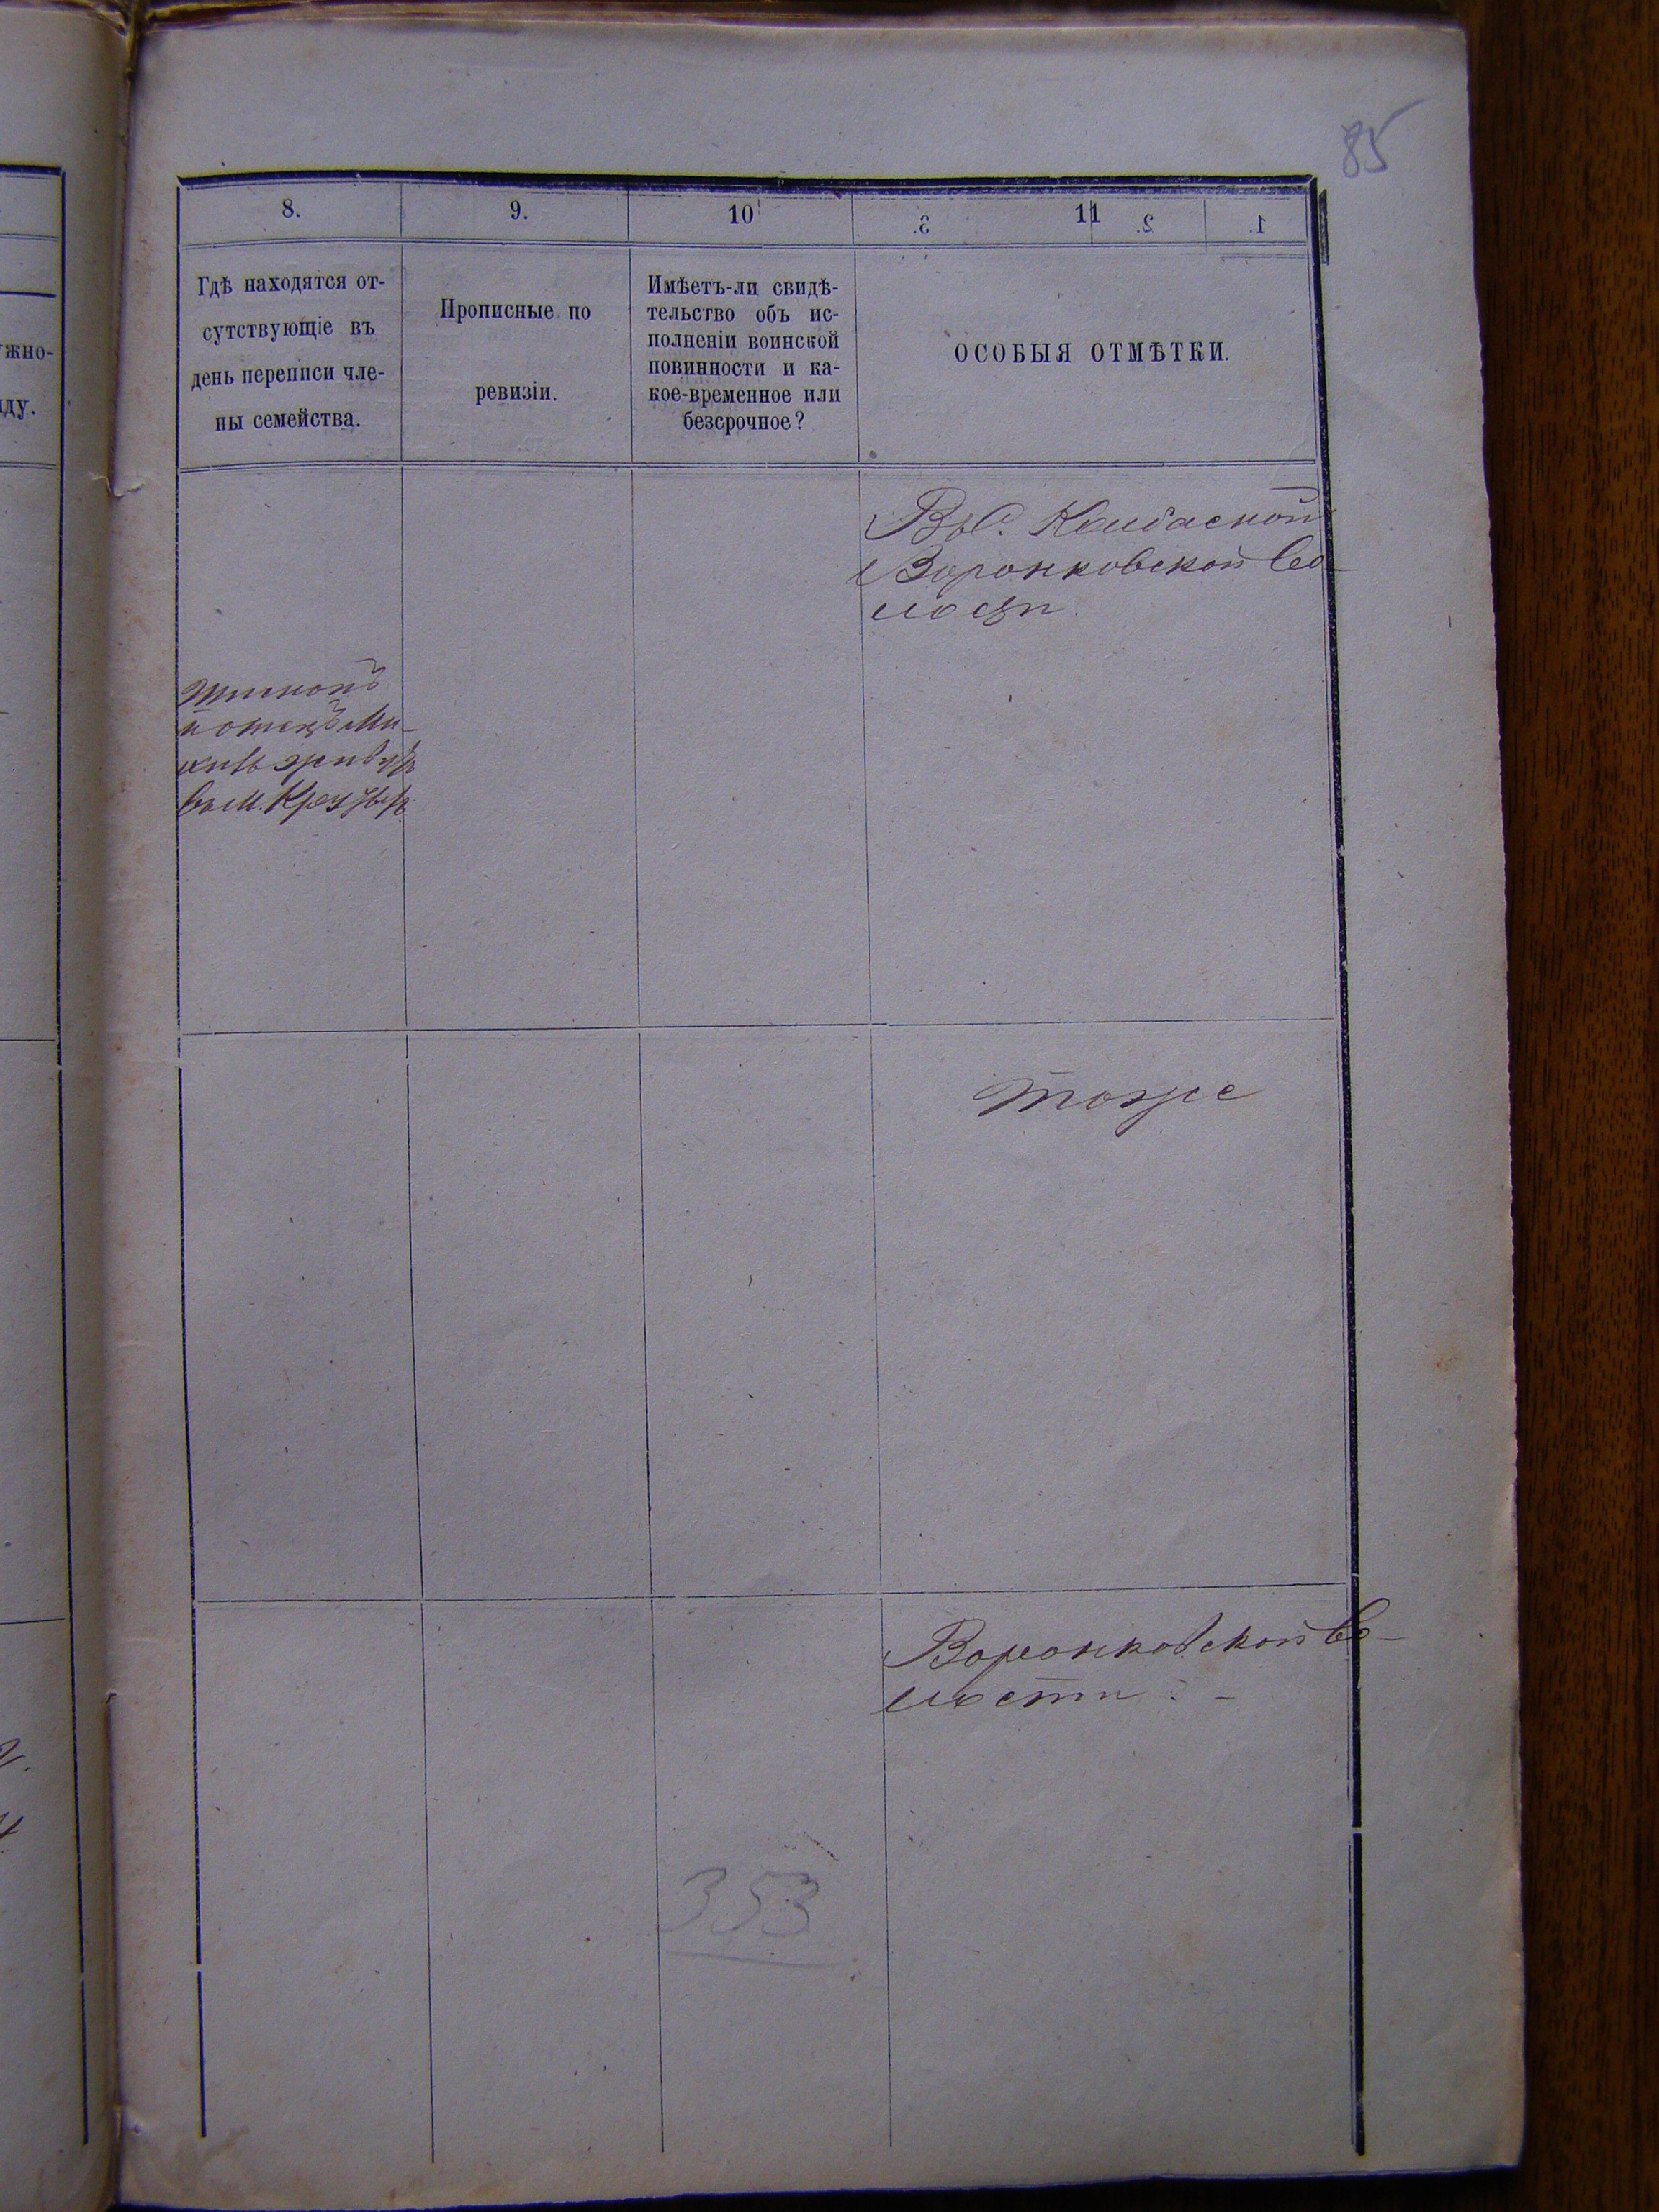 85
8.
9.
10
11
Гдѣ находятся от-
сутствующіе въ
день переписи чле-
ны семейства.
Прописные по
ревизіи.
Имѣетъ-ли свидѣ-
тельство объ ис-
полненіи воинской
повинности и ка-
кое-временное или
безсрочное?
ОСОБЫЯ ОТМѢТКИ.
ужно-
ду.
Воронковской во-
лости.
и отецъ Ми-
живутъ
въ м.
тоже
Воронковской во-
лости. -
353